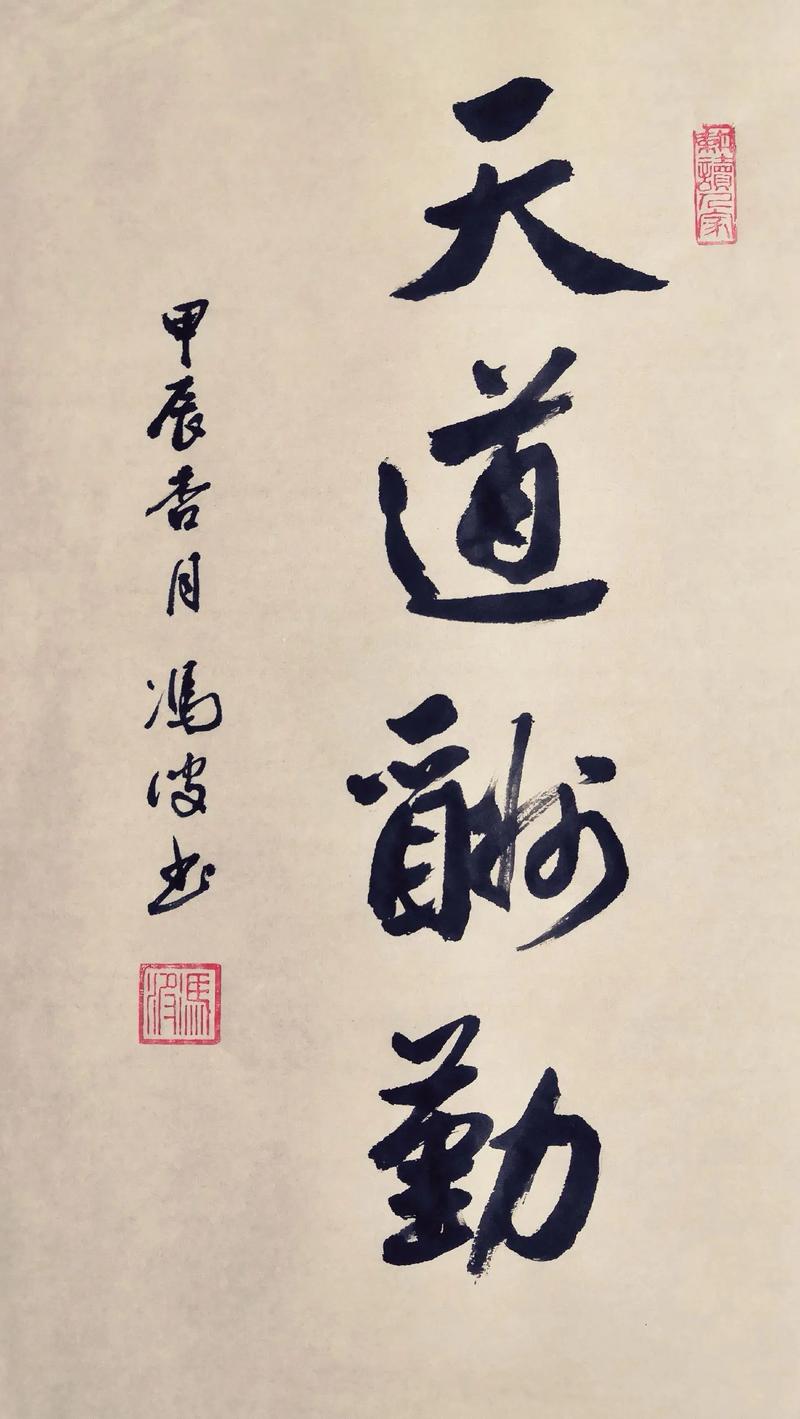 耕讀人家
天道酬勤
甲辰杏月 馮波书
馮波